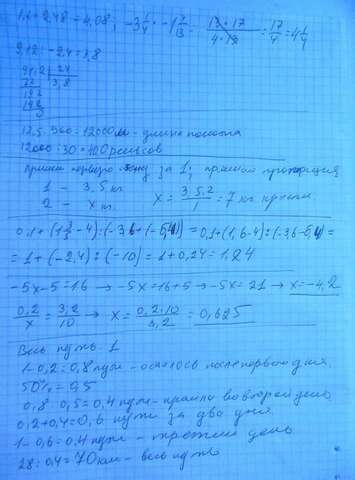 1,6+2,48=4,08; -3 1/4 · -1 4/13 = 13·17/4·13 = 17/4 = 4 1/4
9,12 : -2,4 = 3,8
91,2 | 24
72 | 3,8
192
192
0
12,5 · 960 = 12000 м - длина полотна
12000 : 30 = 400 рельсов
Примем первую за 1, прямая пропорция
1 - 3,5 кг
2 - x кг
x = 3,5·2/1 = 7 кг крупы.
0,1+(1 3/5 - 4):(-3,6+(-6,4)) = 0,1+(1,6-4):(-3,6-6,4) =
= 1+(-2,4):(-10) = 1+0,24 = 1,24
-5x-5=16 → -5x=16+5 → -5x=21 → x=-4,2
0,2/x = 3,2/10 → x = 0,2·10/3,2 = 0,625
Весь путь - 1
1-0,2=0,8 пути - осталось после первого дня.
50%=0,5
0,8·0,5=0,4 пути - прошли во второй день
0,2+0,4=0,6 пути за два дня
1-0,6=0,4 пути - третий день
28:0,4=70 км - весь путь